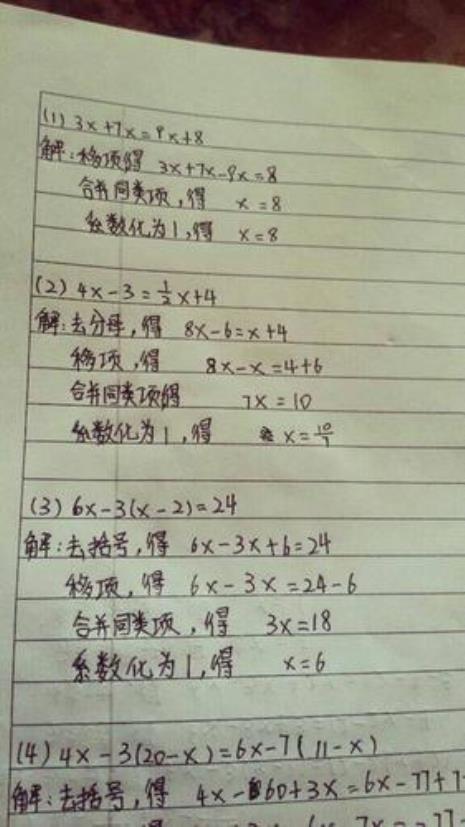 (1) 3x+7x=9x+8
解:移项得 3x+7x-9x=8
合并同类项,得 x=8
系数化为1,得 x=8
(2) 4x-3=\frac{1}{2}x+4
解:去分母,得 8x-6=x+4
移项,得 8x-x=4+6
合并同类项得 7x=10
系数化为1,得 x=\frac{10}{7}
(3) 6x-3(x-2)=24
解:去括号,得 6x-3x+6=24
移项,得 6x-3x=24-6
合并同类项,得 3x=18
系数化为1,得 x=6
(4) 4x-3(20-x)=6x-7(11-x)
解:去括号,得 4x-60+3x=6x-77+7